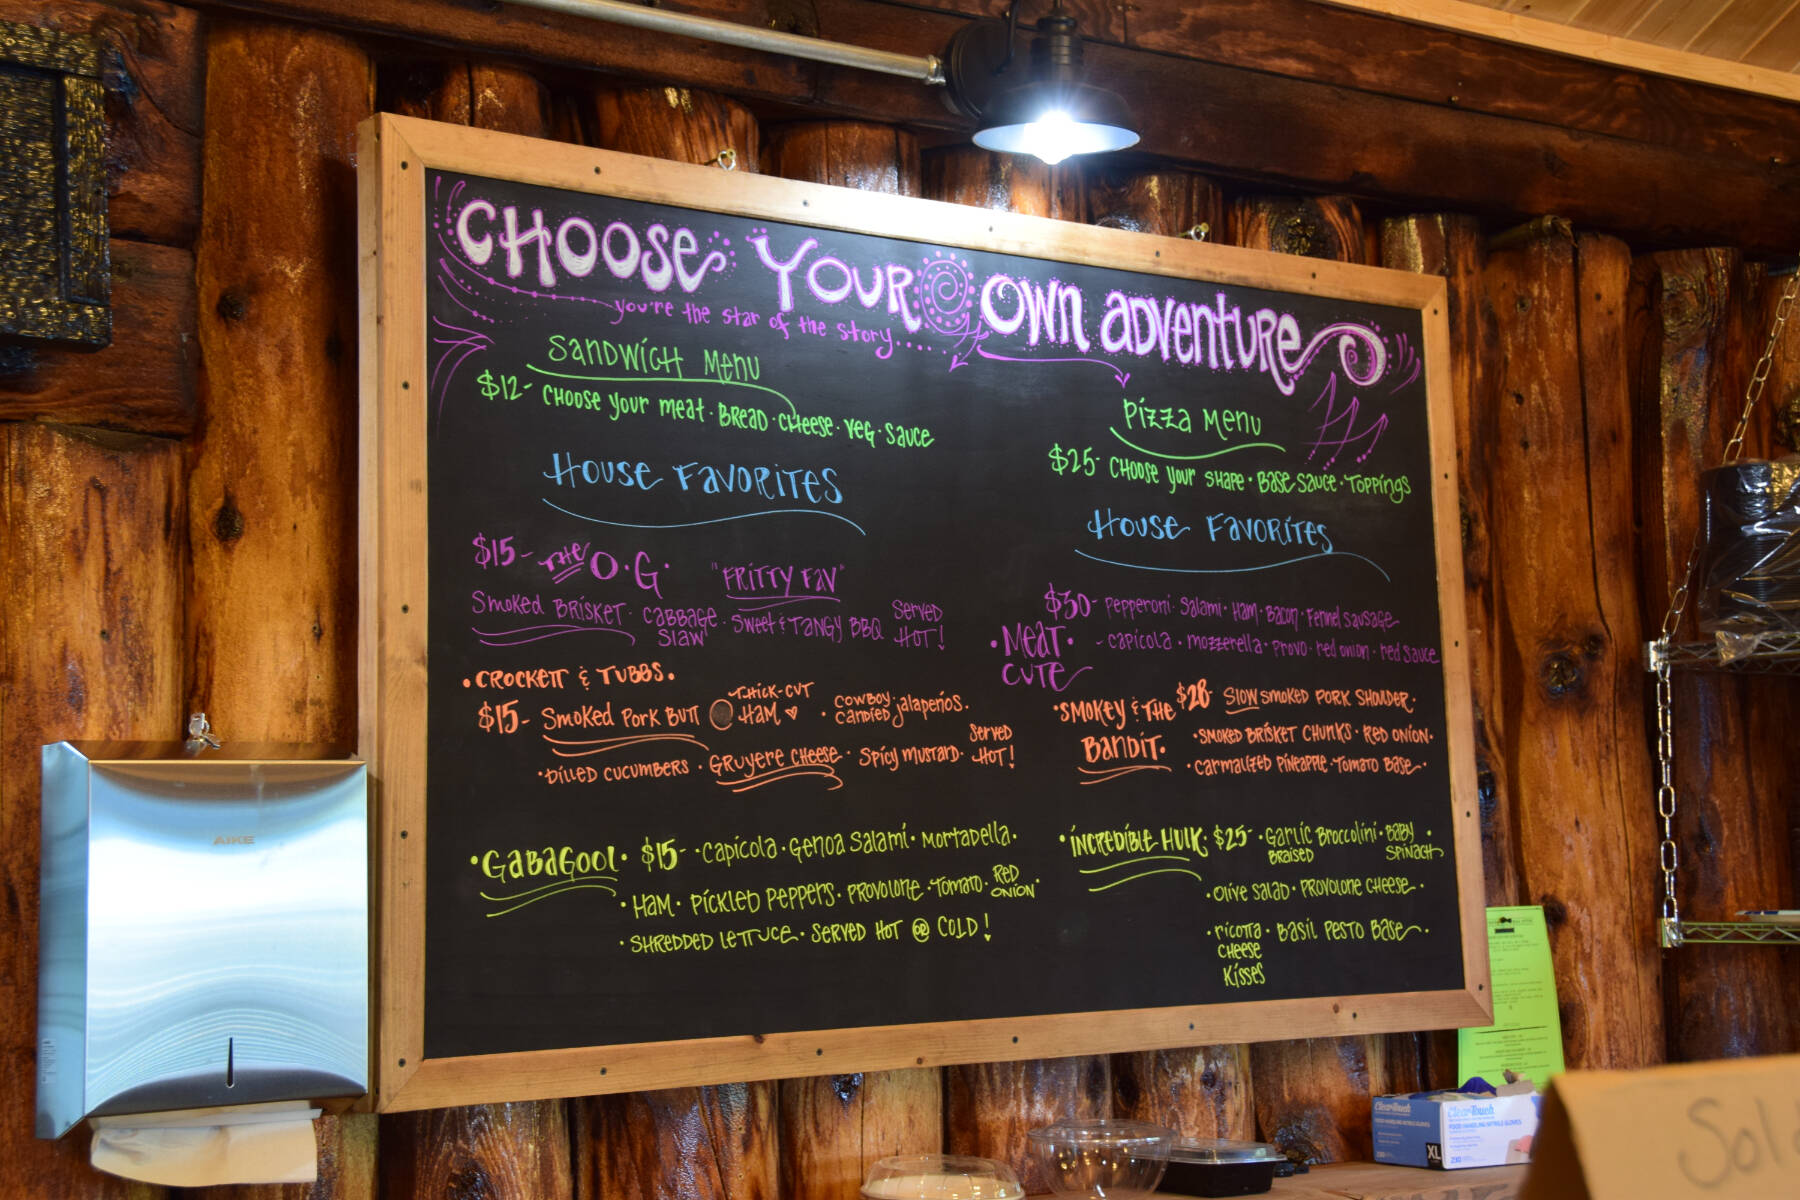 CHOOSE YOUR OWN ADVENTURE
you're the star of the story.....
SANDWICH MENU
$12- CHOOSE YOUR MEAT · BREAD · CHEESE · VEG · SAUCE
HOUSE FAVORITES
$15- THE O.G. "FRITTY FAV"
SMOKED BRISKET · CABBAGE SLAW · SWEET & TANGY BBQ SERVED HOT!
· CROCKETT & TUBBS ·
$15- SMOKED PORK BUTT THICK-CUT HAM · COWBOY CANDIED JALAPEÑOS ·
· DILLED CUCUMBERS · GRUYERE CHEESE · SPICY MUSTARD · SERVED HOT!
· GABAGOOL · $15- · CAPICOLA · GENOA SALAMI · MORTADELLA ·
· HAM · PICKLED PEPPERS · PROVOLONE · TOMATO · RED ONION ·
· SHREDDED LETTUCE · SERVED HOT OR COLD!
PIZZA MENU
$25- CHOOSE YOUR SHAPE · BASE SAUCE · TOPPINGS
HOUSE FAVORITES
· MEAT CUTE · $30- PEPPERONI · SALAMI · HAM · BACON · FENNEL SAUSAGE
- CAPICOLA · MOZZERELLA · PROVO · RED ONION · RED SAUCE
· SMOKEY & THE BANDIT · $28- SLOW SMOKED PORK SHOULDER ·
· SMOKED BRISKET CHUNKS · RED ONION ·
· CARMALIZED PINEAPPLE · TOMATO BASE ·
· INCREDIBLE HULK · $25- · GARLIC BRAISED BROCCOLINI · BABY SPINACH ·
· OLIVE SALAD · PROVOLONE CHEESE ·
· RICOTTA CHEESE KISSES · BASIL PESTO BASE ·
AIKE
ClearTouch
FOOD HANDLING NITRILE GLOVES
XL